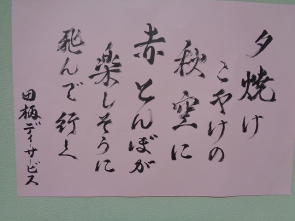 夕焼け
こやけの
秋空に
赤とんぼが
楽しそうに
飛んで行く
田柄デイサービス